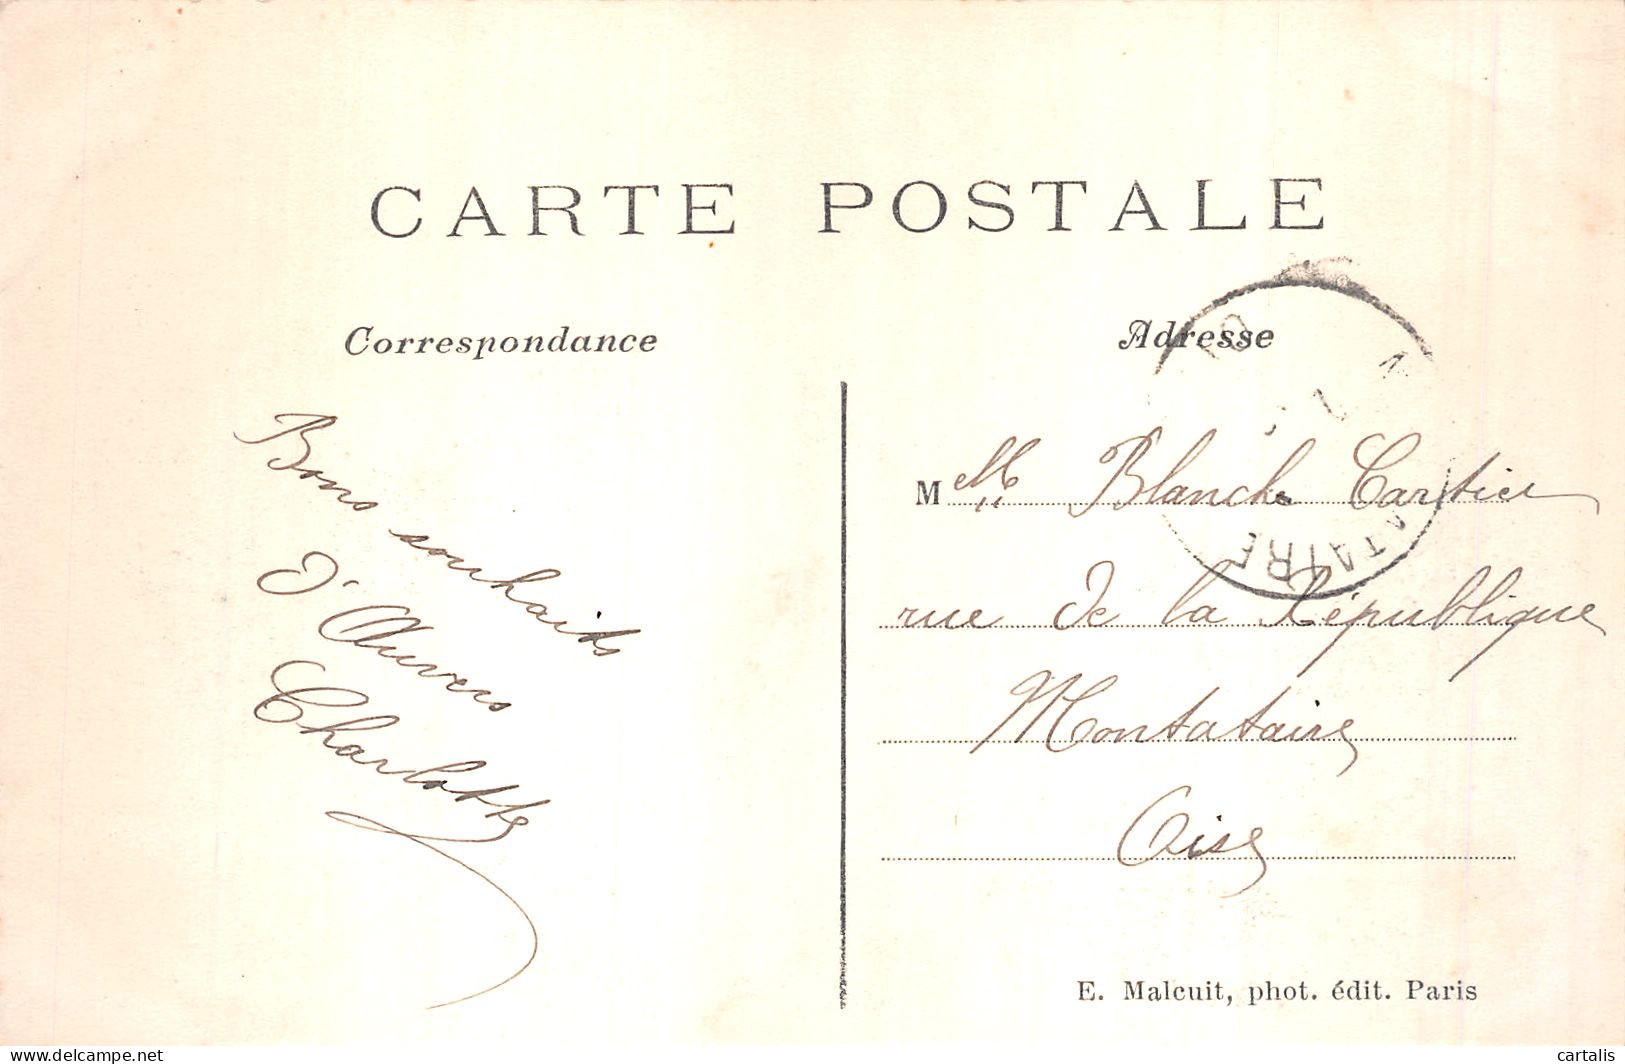 CARTE POSTALE
Correspondance
Adresse
Bons souhaits
d'Auvers
Charlotte
M elle Blanche Cartier
rue de la République
Montataire
Oise
TAIRE
E. Malcuit, phot. édit. Paris
delcampe.net
cartalis